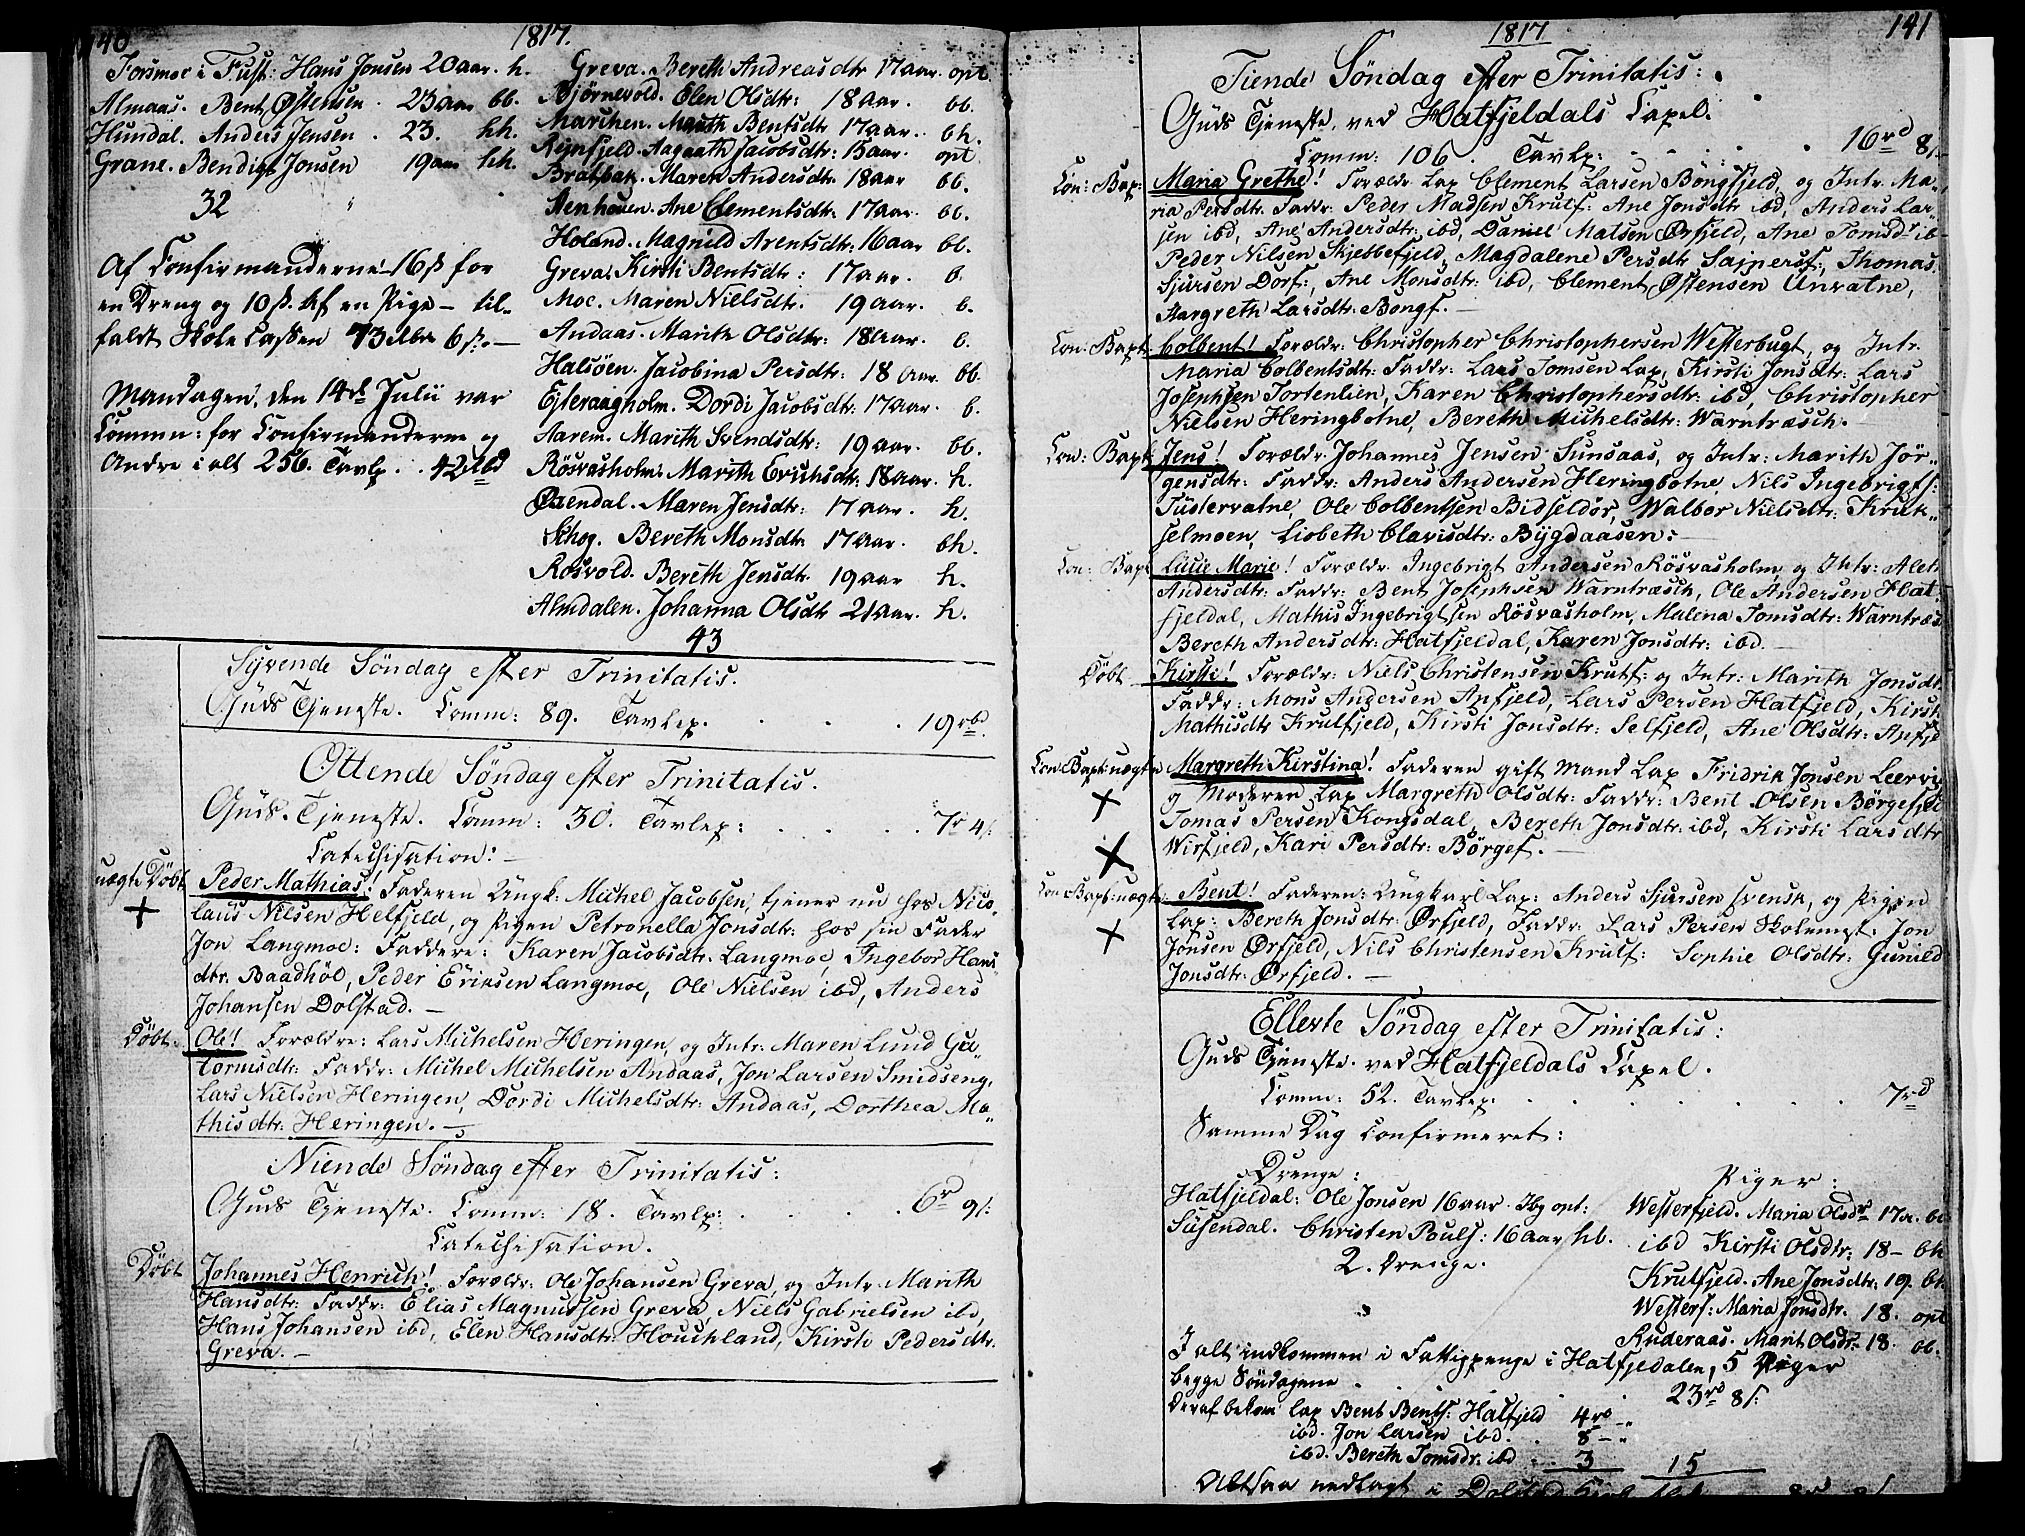 140
1817.
Forsmoe i Fust: Hans Jonsen 20 aar. h.
Almaas. Bent Østensen. 23 aar bb.
Hundal. Anders Jensen. 23. hh.
Grane. Bendigt Jonsen 19 aar hh.
32
Af Confirmanderne 16 ß for
en Dreng og 10 ß. af en Pige – til-
faldt Skole Cassen 6 ß. –
Mandagen, den 14de Julii var
Comm: for Confirmanderne og
Andre i alt 256. Tavlp. 42 rbd
Greva. Bereth Andreasdtr 17 aar. opt.
Bjørnevold. Elen Olsdtr: 18 aar. bb.
Marchen. Marith Bentsdtr 17 aar. bh.
Reinfjeld. Aagaath Jacobsdtr: 15 aar. opt
Bratbak. Maren Andersdtr. 18 aar bb.
Stenhouen. Ane Clementsdtr: 17 aar. bb.
Holand. Magnild Arentsdtr: 16 aar bb.
Greva. Kirsti Bentsdtr: 17 aar. b.
Moe. Maren Nielsdtr. 19 aar. b.
Andaas. Marith Olsdtr: 18 aar. b.
Halsöen. Jacobina Persdtr: 18 aar. bb.
Dordi Jacobsdtr: 17 aar. b.
Aarem. Marith Svendsdtr: 19 aar. bb.
Rösvasholm. Marith Erichsdtr: 18 aar. h.
Maren Jensdtr: 17 aar. h.
Schog. Bereth Monsdtr 17 aar. bh.
Rosvold. Bereth Jensdtr. 19 aar h.
Almdalen. Johanna Olsdtr 21 aar. h.
43
Syvende Söndag efter Trinitatis.
Guds Tjeneste. Comm: 89. Tavlep. . . . 19 rbd.
Ottende Söndag efter Trinitatis.
Guds Tjeneste. Comm: 30. Tavlep: . . . . 7 r 4 ß
Catechisation: –
uægte Döbt Peder Mathias! Faderen Ungk: Michel Jacobsen, tjener nu hos Nico-
laus Nilsen Helfjeld, og Pigen Petronella Jonsdtr: hos sin Fader
Jon Langmoe: Faddere: Karen Jacobsdtr. Langmoe, Ingebor Hans-
dtr. Baadhöl, Peder Eriksen Langmoe, Ole Nielsen ibd, Anders
Johansen Dolstad. –
Döbt. Ole! Forældre: Lars Michelsen Heringen, og Intr: Maren Lund Gu-
tormsdtr: Faddr: Michel Michelsen Andaas, Jon Larsen Smidseng,
Lars Nielsen Heringen, Dordi Michelsdtr: Andaas, Dorthea Ma-
thisdtr: Heringen. –
Niende Söndag efter Trinitatis:
Guds Tjeneste. Comm: 18. Tavlp: . . . . 6 rd 9 ß.
Catechisation.
Döbt Johannes Henrich! Forældr: Ole Johansen Greva, og Intr. Marith
Hansdtr: Faddr: Elias Magnussen Greva, Niels Gabrielsen ibd,
Hans Johansen ibd, Elen Hansdtr: Houchland, Kirsti Pedersdtr.
Greva. –
1817
141
Tiende Söndag efter Trinitatis:
Guds Tjeneste, ved Hatfjeldals Capel.
Comm: 106. Tavlp: . . . . 16 rd 8 ß.
Con: Bap: Maria Grethe! Forældr Lap Clement Larsen Böngfjeld, og Intr. Ma-
ria Persdtr. Faddr: Peder Madsen Krutf: Ane Jonsdtr ibd, Anders Lar-
sen ibd, Ane Andersdtr: ibd, Daniel Matsen Ørfjeld, Ane Tomsdtr ib
Peder Nilsen Skjebbefjeld, Magdalene Persdtr Thomas
Sjursen Dorf:, Ane Monsdtr: ibd, Clement Østensen Unvatne,
Margreth Larsdtr: Bongf. –
Con: Bapt: Colbent! Forældr: Christopher Christophersen Westerbugt, og Intr.
Maria Colbentsdtr: Faddr: Lars Tomsen Lap, Kirsti Jonsdtr: Lars
Josephsen Tortenlien, Karen Christophersdtr: ibd, Christopher
Nielsen Heringbotne, Bereth Michelsdtr: Warntræsch. –
Con: Bapt: Jens! Forældr. Johannes Jensen Sunsaas, og Intr: Marith Jör-
gensdtr: Faddr: Anders Andersen Heringbotne, Nils Ingebrigts:
Tüstervatne, Ole Colbentsen Walbor Nielsdtr: Kruk-
selmoen, Lisbeth Clavisdtr: Bygdaasen: –
Con: Bapt Lucie Marie! Forældr. Ingebrigt Andersen Rösvasholm, og Intr: Aleth
Andersdtr: Faddr: Bent Josephsen Warntræsch, Ole Andersen Hat-
fjeldal, Mathis Ingebrigtsen Rösvasholm, Malena Tomsdtr: Warntræs
Bereth Andersdtr: Hatfjeldal, Karen Jonsdtr: ibd. –
Döbt Kirsti! Forældr: Niels Christensen Krutf: og Intr: Marith Jonsdtr.
Faddr: Mons Andersen Apfjeld, Lars Persen Hatfjeld, Kirsti
Mathisdtr Krutfjeld, Kirsti Jonsdtr: Selfjeld, Ane Olsdtr: Apfje
Con: Bapt: uægte Margreth Kirstina! Faderen gift Mand Lap Fridrik Jonsen
og Moderen Lap Margreth Olsdtr: Faddr: Bent Olsen Börgefjel
Tomas Persen Kongsdal, Bereth Jonsdtr: ibd, Kirsti Larsdtr
Wirfjeld, Kari Persdtr: Börgef. –
Con: Bapt: uægte Bent! Faderen: Ungkarl Lap: Anders Sjursen svensk, og Pigen
Lap: Bereth Jonsdtr: Ørfjeld, Faddr: Lars Persen Skolemest. Jon
Jonsen Ørfjeld, Nils Christensen Krutf: Sophie Olsdtr: Gunild
Jonsdtr: Ørfjeld. –
Ellevte Söndag efter Trinitatis:
Guds Tjeneste ved Hatfjeldals Capel.
Comm: 52. Tavlep: . . . . 7 rd
Samme Dag Confirmeret:
Drenge:
Hatfjeldal: Ole Jonsen 16 aar. Ibg opt:
Susendal. Christen Pouls: 16 aar hb.
2. Drenge.
Piger:
Westerfjeld. Maria Olsdtr 17 a. bb
ibd Kirsti Olsdtr: 18 – bh
Krutfjeld. Ane Jonsdtr: 19. bh
Westerf: Maria Jonsdtr. 18. opt
Ruderaas. Marit Olsdtr: 18. ob.
5 Piger
I alt indkommen i Fattigpenge i Hatfjedalen,
begge Söndagene . . . 23 rd 8 ß.
Deraf bekom Lap Bent Bents: Hatfjeld 4 rd – „
ibd. Jon Larsen ibd. . 8 – „
ibd. Bereth Tomsdr. ibd . . 3 15
Altsaa nedlagt i Dolstad Kirk